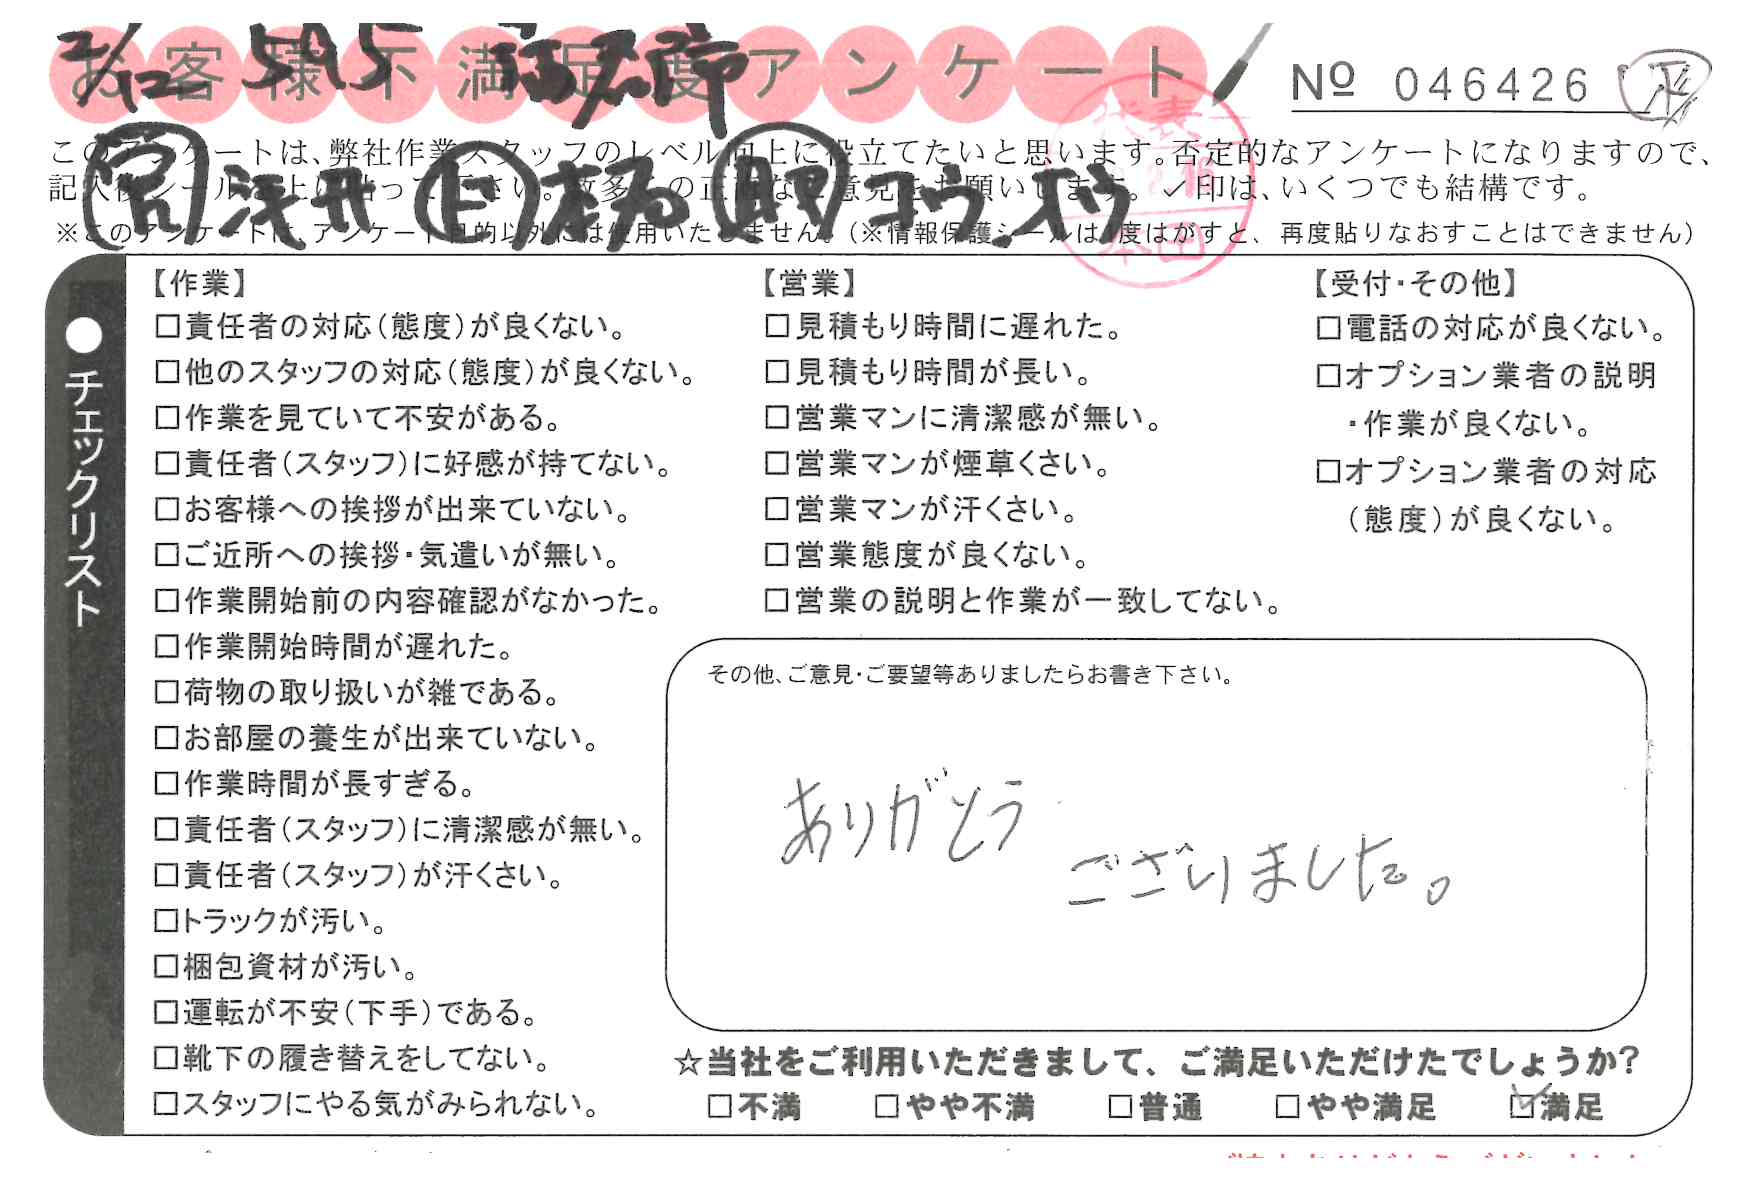 お客様不満足度アンケート
2/12 595
Nº 046426
このアンケートは、弊社作業スタッフのレベル向上に役立てたいと思います。否定的なアンケートになりますので、
記入後シールを上に貼って下さい。数多くの正直なご意見をお願いします。✓印は、いくつでも結構です。
※このアンケートは、アンケート目的以外には使用いたしません。(※情報保護シールは1度はがすと、再度貼りなおすことはできません)
代表
本田
浅井 上 コウ
●チェックリスト
【作業】
□責任者の対応(態度)が良くない。
□他のスタッフの対応(態度)が良くない。
□作業を見ていて不安がある。
□責任者(スタッフ)に好感が持てない。
□お客様への挨拶が出来ていない。
□ご近所への挨拶・気遣いが無い。
□作業開始前の内容確認がなかった。
□作業開始時間が遅れた。
□荷物の取り扱いが雑である。
□お部屋の養生が出来ていない。
□作業時間が長すぎる。
□責任者(スタッフ)に清潔感が無い。
□責任者(スタッフ)が汗くさい。
□トラックが汚い。
□梱包資材が汚い。
□運転が不安(下手)である。
□靴下の履き替えをしてない。
□スタッフにやる気がみられない。
【営業】
□見積もり時間に遅れた。
□見積もり時間が長い。
□営業マンに清潔感が無い。
□営業マンが煙草くさい。
□営業マンが汗くさい。
□営業態度が良くない。
□営業の説明と作業が一致してない。
【受付・その他】
□電話の対応が良くない。
□オプション業者の説明
・作業が良くない。
□オプション業者の対応
(態度)が良くない。
その他、ご意見・ご要望等ありましたらお書き下さい。
ありがとう
ございました。
☆当社をご利用いただきまして、ご満足いただけたでしょうか?
□不満 □やや不満 □普通 □やや満足 ☑満足